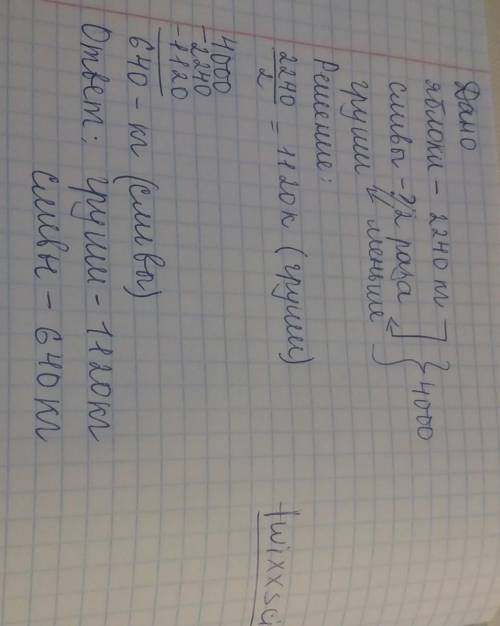 Дано
яблоки - 2240 кг
сливы - ?
груши - ? в 2 раза меньше
4000
Решение:
2240
2
= 1120к (груши)
4000
-2240
-1120
640 - кг (сливы)
Ответ: груши - 1120кг
сливы - 640кг
twixxsci